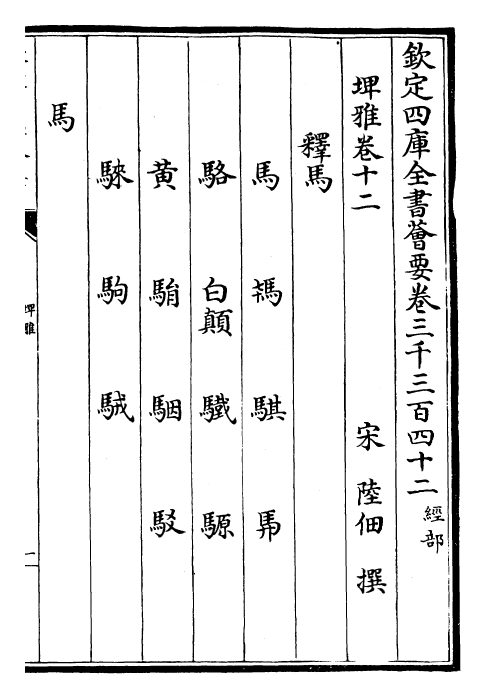 欽定四庫全書薈要卷三千三百四十二 經部
埤雅卷十二 宋 陸佃 撰
釋馬
馬 騏
駱 白顛 驖 騵
黃 駽 駰 駁
騋 駒 駥
馬
埤雅
一